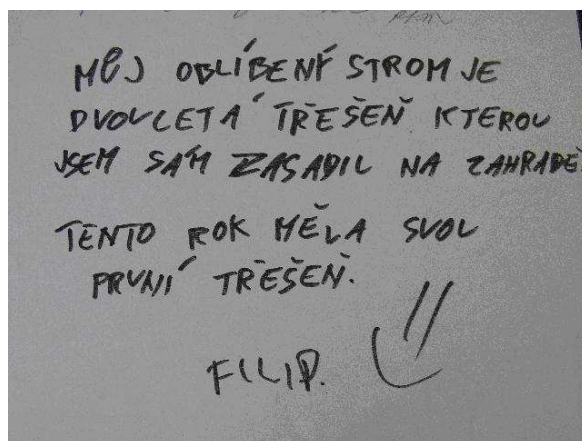 MŮJ OBLÍBENÝ STROM JE
DVOULETÁ TŘEŠEŇ KTEROU
JSEM SÁM ZASADIL NA ZAHRADĚ
TENTO ROK MĚLA SVOU
PRVNÍ TŘEŠEŇ.
FILIP.